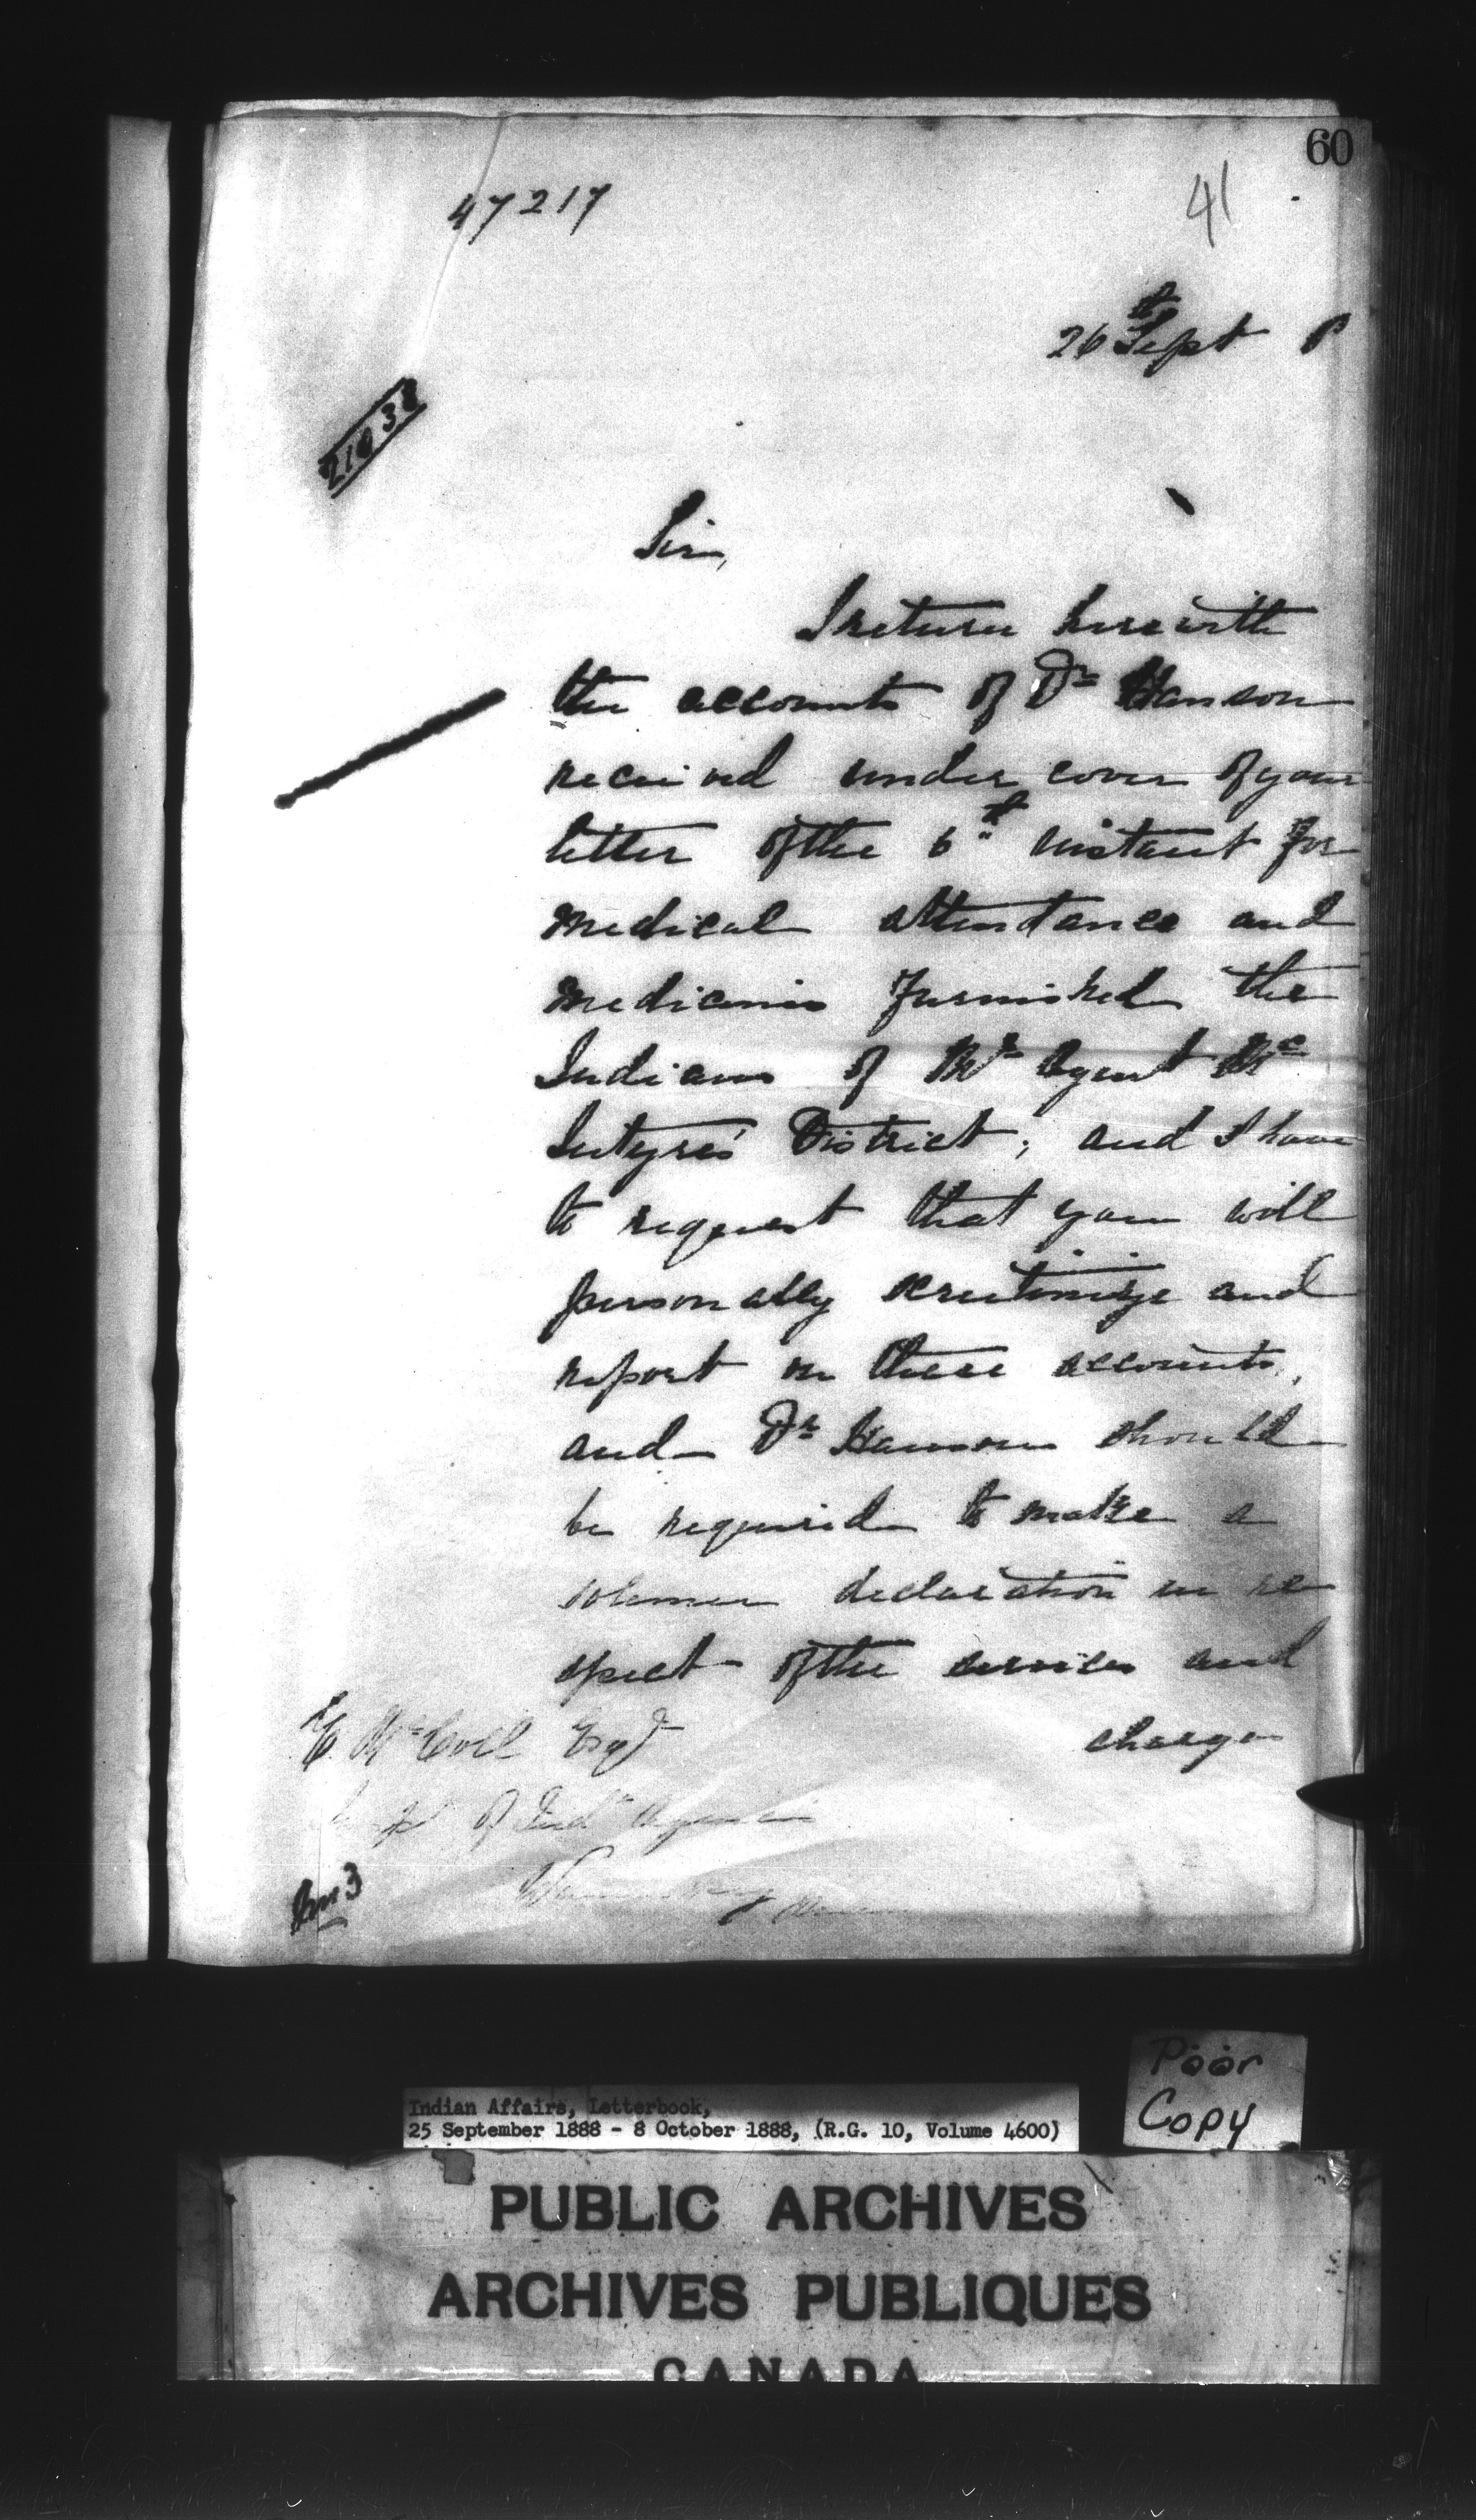 60
41
47217
26th Sept 8
21038
Sir,
I return herewith
the accounts of Dr Hanson
received under cover of your
letter of the 6th instant for
medical attendance and
medicines furnished the
Indians of Mr Agent Mc
Intyre's District; and I have
to request that you will
personally scrutinize and
report on these accounts,
and Dr Hanson should
be required to make a
solemn declaration in re
spect of the services and
charges
E McColl Esqr
of Indn Agencies
Indian Affairs, Letterbook,
25 September 1888 - 8 October 1888, (R.G. 10, Volume 4600)
Poor
Copy
PUBLIC ARCHIVES
ARCHIVES PUBLIQUES
CANADA